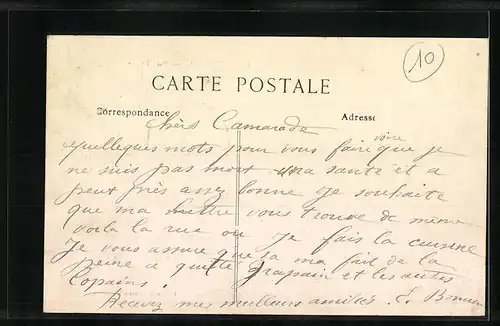 10
CARTE POSTALE
Correspondance
Adresse
Chèrs Camarade
quelleques mots pour vous faire voire que je
ne suis pas mort ma santé et a
peux près assez bonne je souhaite
que ma lettre vous trouve de même
voila la rue ou je fais la cuisine
Je vous assure que sa ma fait de la
peine a quitte et les autres
Copains.
Recevez mes meilleurs amitiés. E.